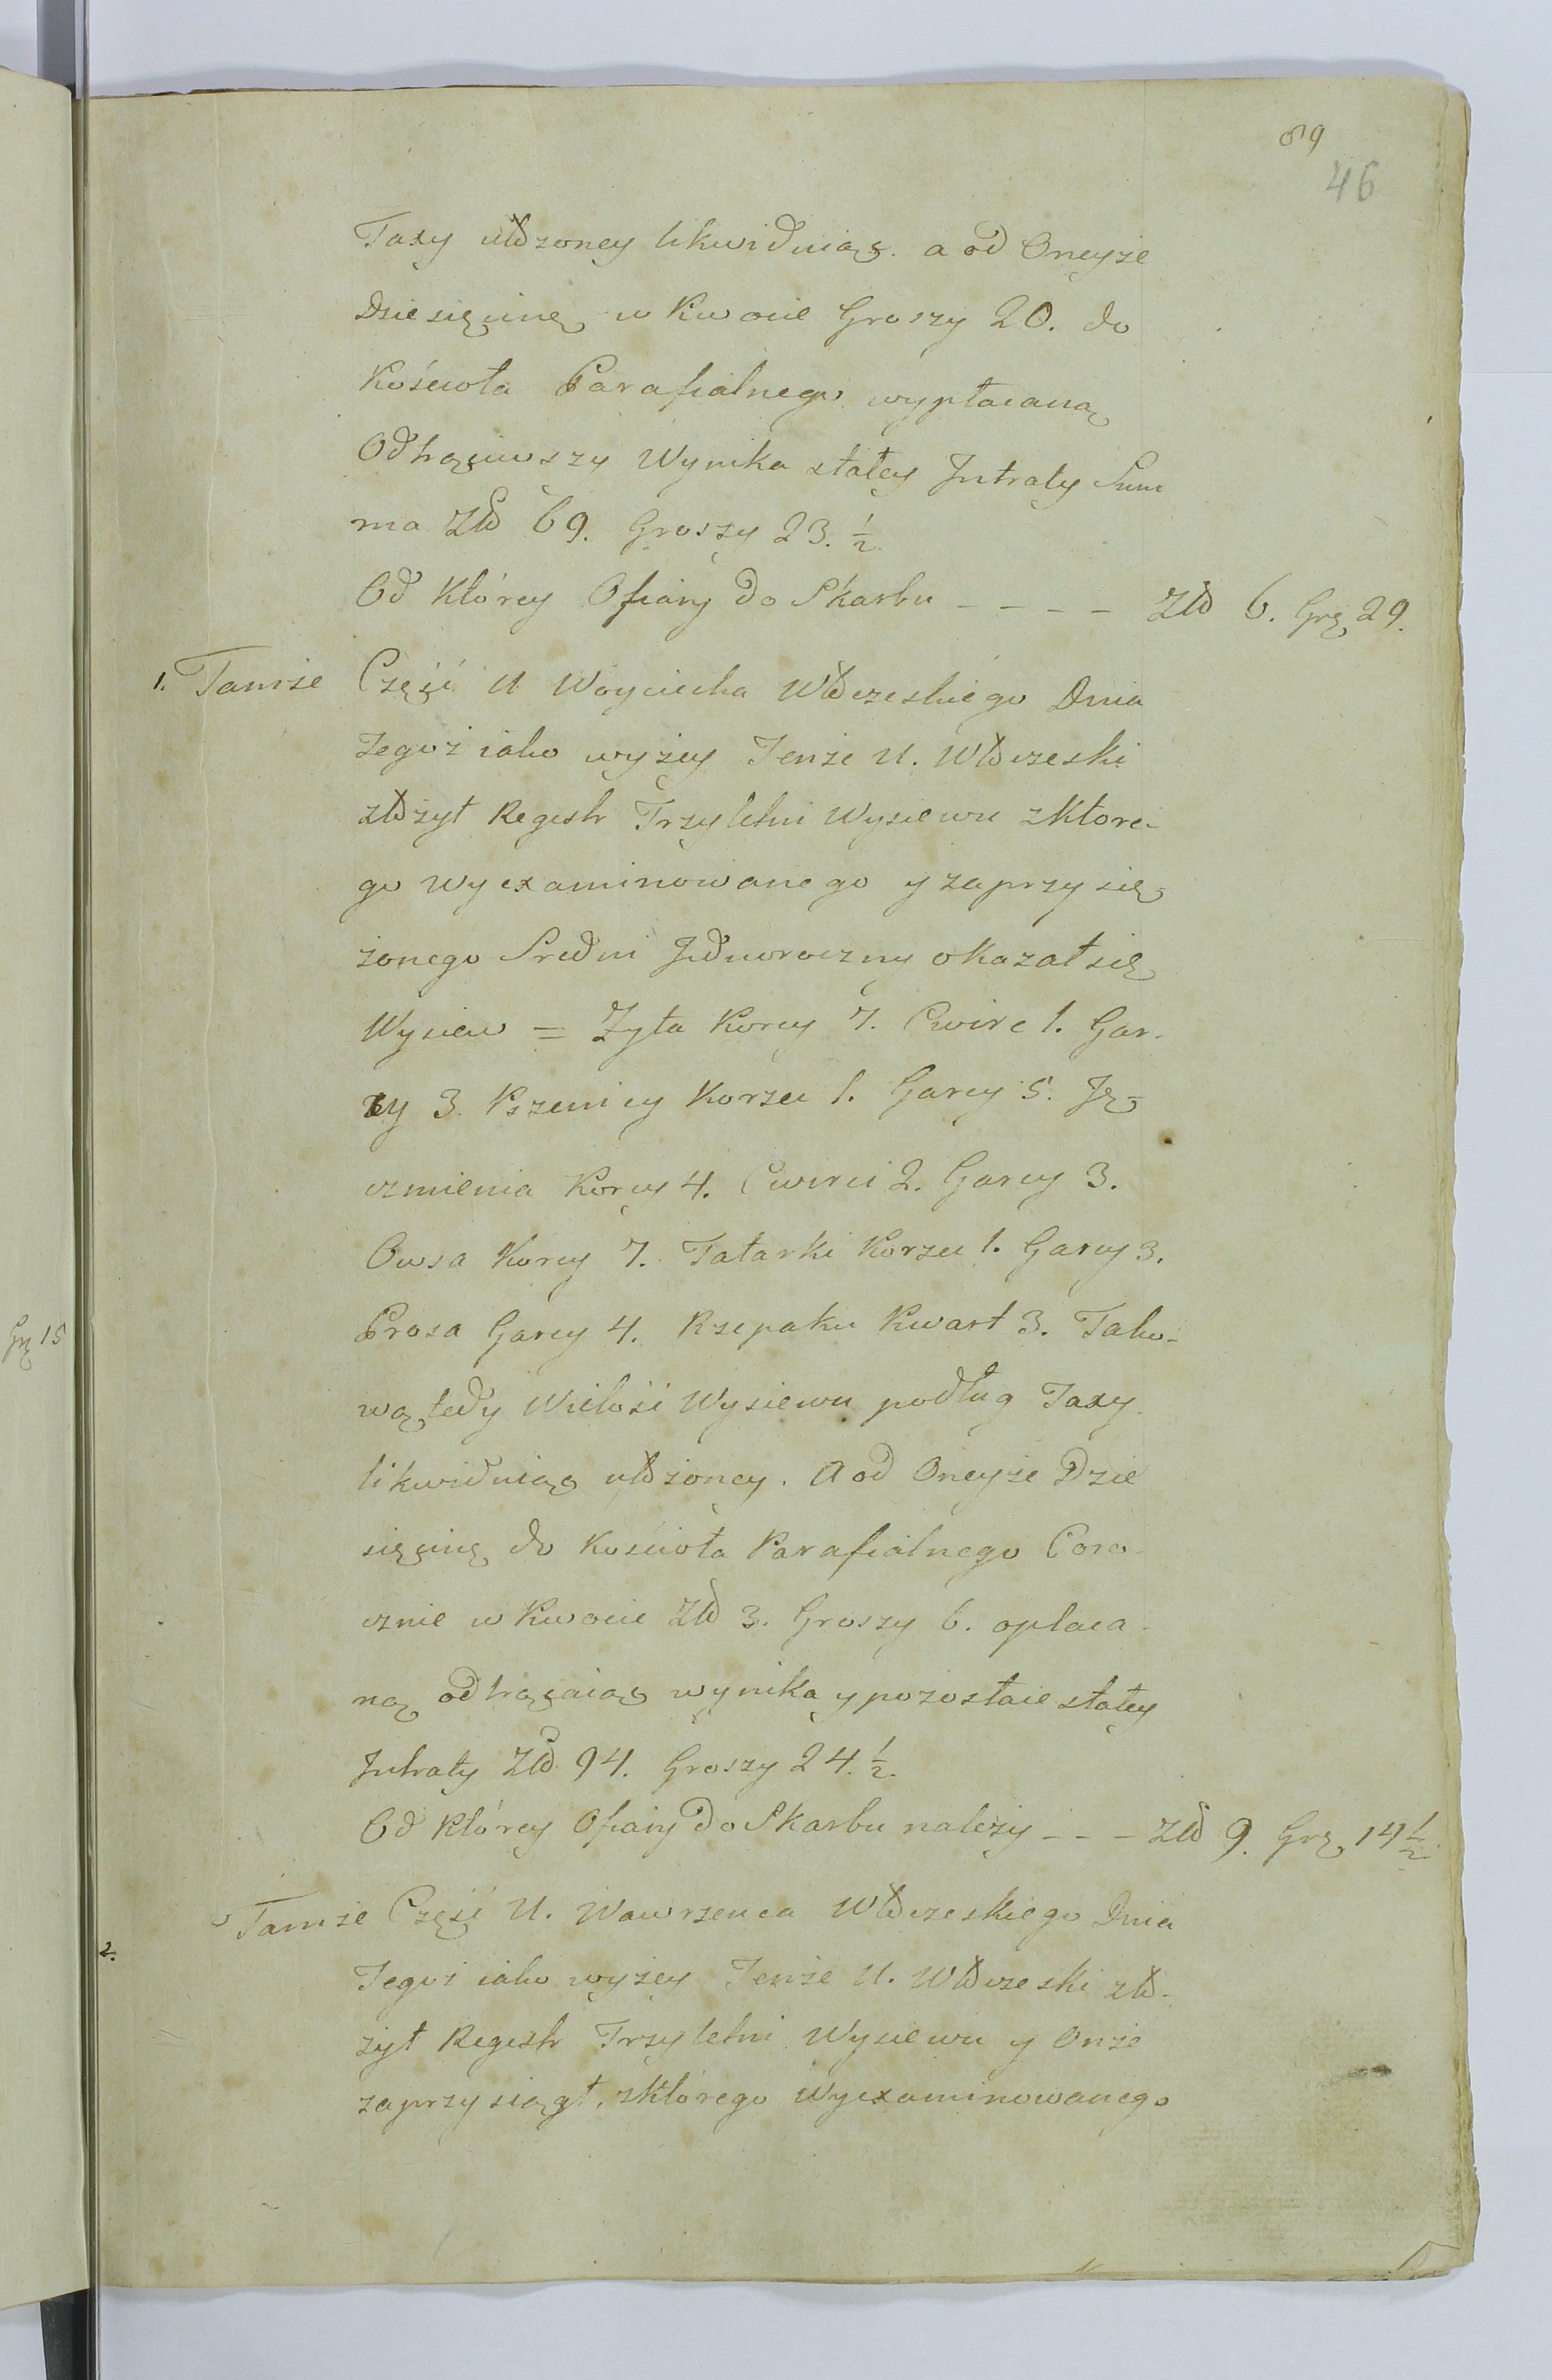 89
46
Taxy ułożoney likwiduiąc. a od Oneyże
Dziesięcinę w Kwocie Groszy 20. do
Kościoła Parafialnego wypłacaną
Odtrąciwszy Wynika stałey Jntraty Sum
ma Zło 69. Groszy 23. ½
Od Którey Ofiary do Skarbu - - - - Zło 6. Gr. 29.
1. Tamże Część U Woyciecha Włoczeskiego Dnia
Tegoż iako wyżey Tenże U. Włoczeski
złożył Regestr Trzyletni Wysiewu z Które-
go wyexaminowanego y zaprzysię-
żonego Sredni Jednoroczny okazał się
Wysiew = Zyta Korcy 7. Cwierc 1. Gar-
cy 3. Pszenicy Korzec 1. Garcy 5. Ję-
czmienia Korcy 4. Cwierci 2. Garcy 3.
Owsa Korcy 7. Tatarki Korzec 1. Garcy 3.
Prosa Garcy 4. Rzepaku Kwart 3. Tako-
wą tedy Wielość Wysiewu podług Taxy
likwiduiąc ułożoney. A od Oneyże Dzie
sięcinę do Kościoła Parafialnego Coro-
cznie w Kwocie Zło 3. Groszy 6. opłaca-
ną odtrącaiąc wynika y pozostaie stałey
Jntraty Zło 94. Groszy 24. ½.
Od Którey Ofiary do Skarbu należy - - - Zło 9. Gr. 14 ½
2. Tamże Część U. Wawrzenca Włoczeskiego Dnia
Tegoż iako wyżey Tenże U. Włoczeski zło-
żył Regestr Trzyletni Wysiewu y Onże
zaprzysiągł, z którego Wyexaminowanego
Gr. 15